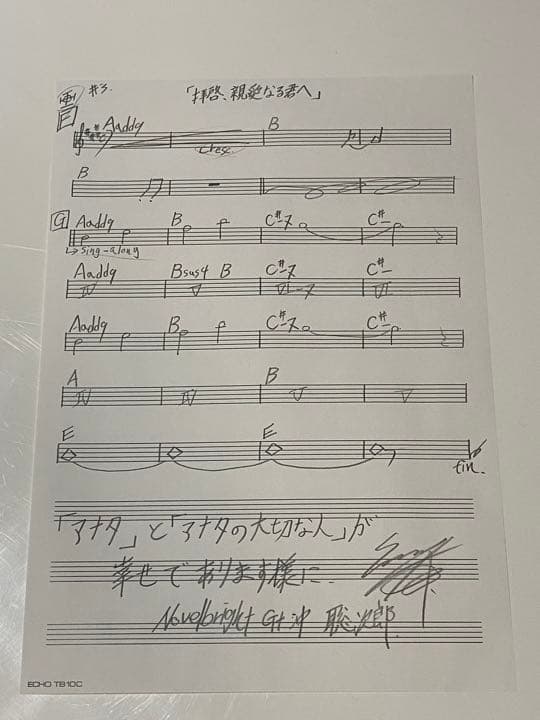 #3. 「拝啓、親愛なる君へ」
F
Aadd9 B
cresc
B
G
Aadd9 B C#-7 C#-
↳ sing-along
Aadd9 Bsus4 B C#-7 C#-
IV V VI-7 VI
Aadd9 B C#-7 C#-
A B
IV IV V V
E E
fin.
「アナタ」と「アナタの大切な人」が
幸せであります様に.
Novelbright Gt 沖 聡次郎
ECHO TB10C